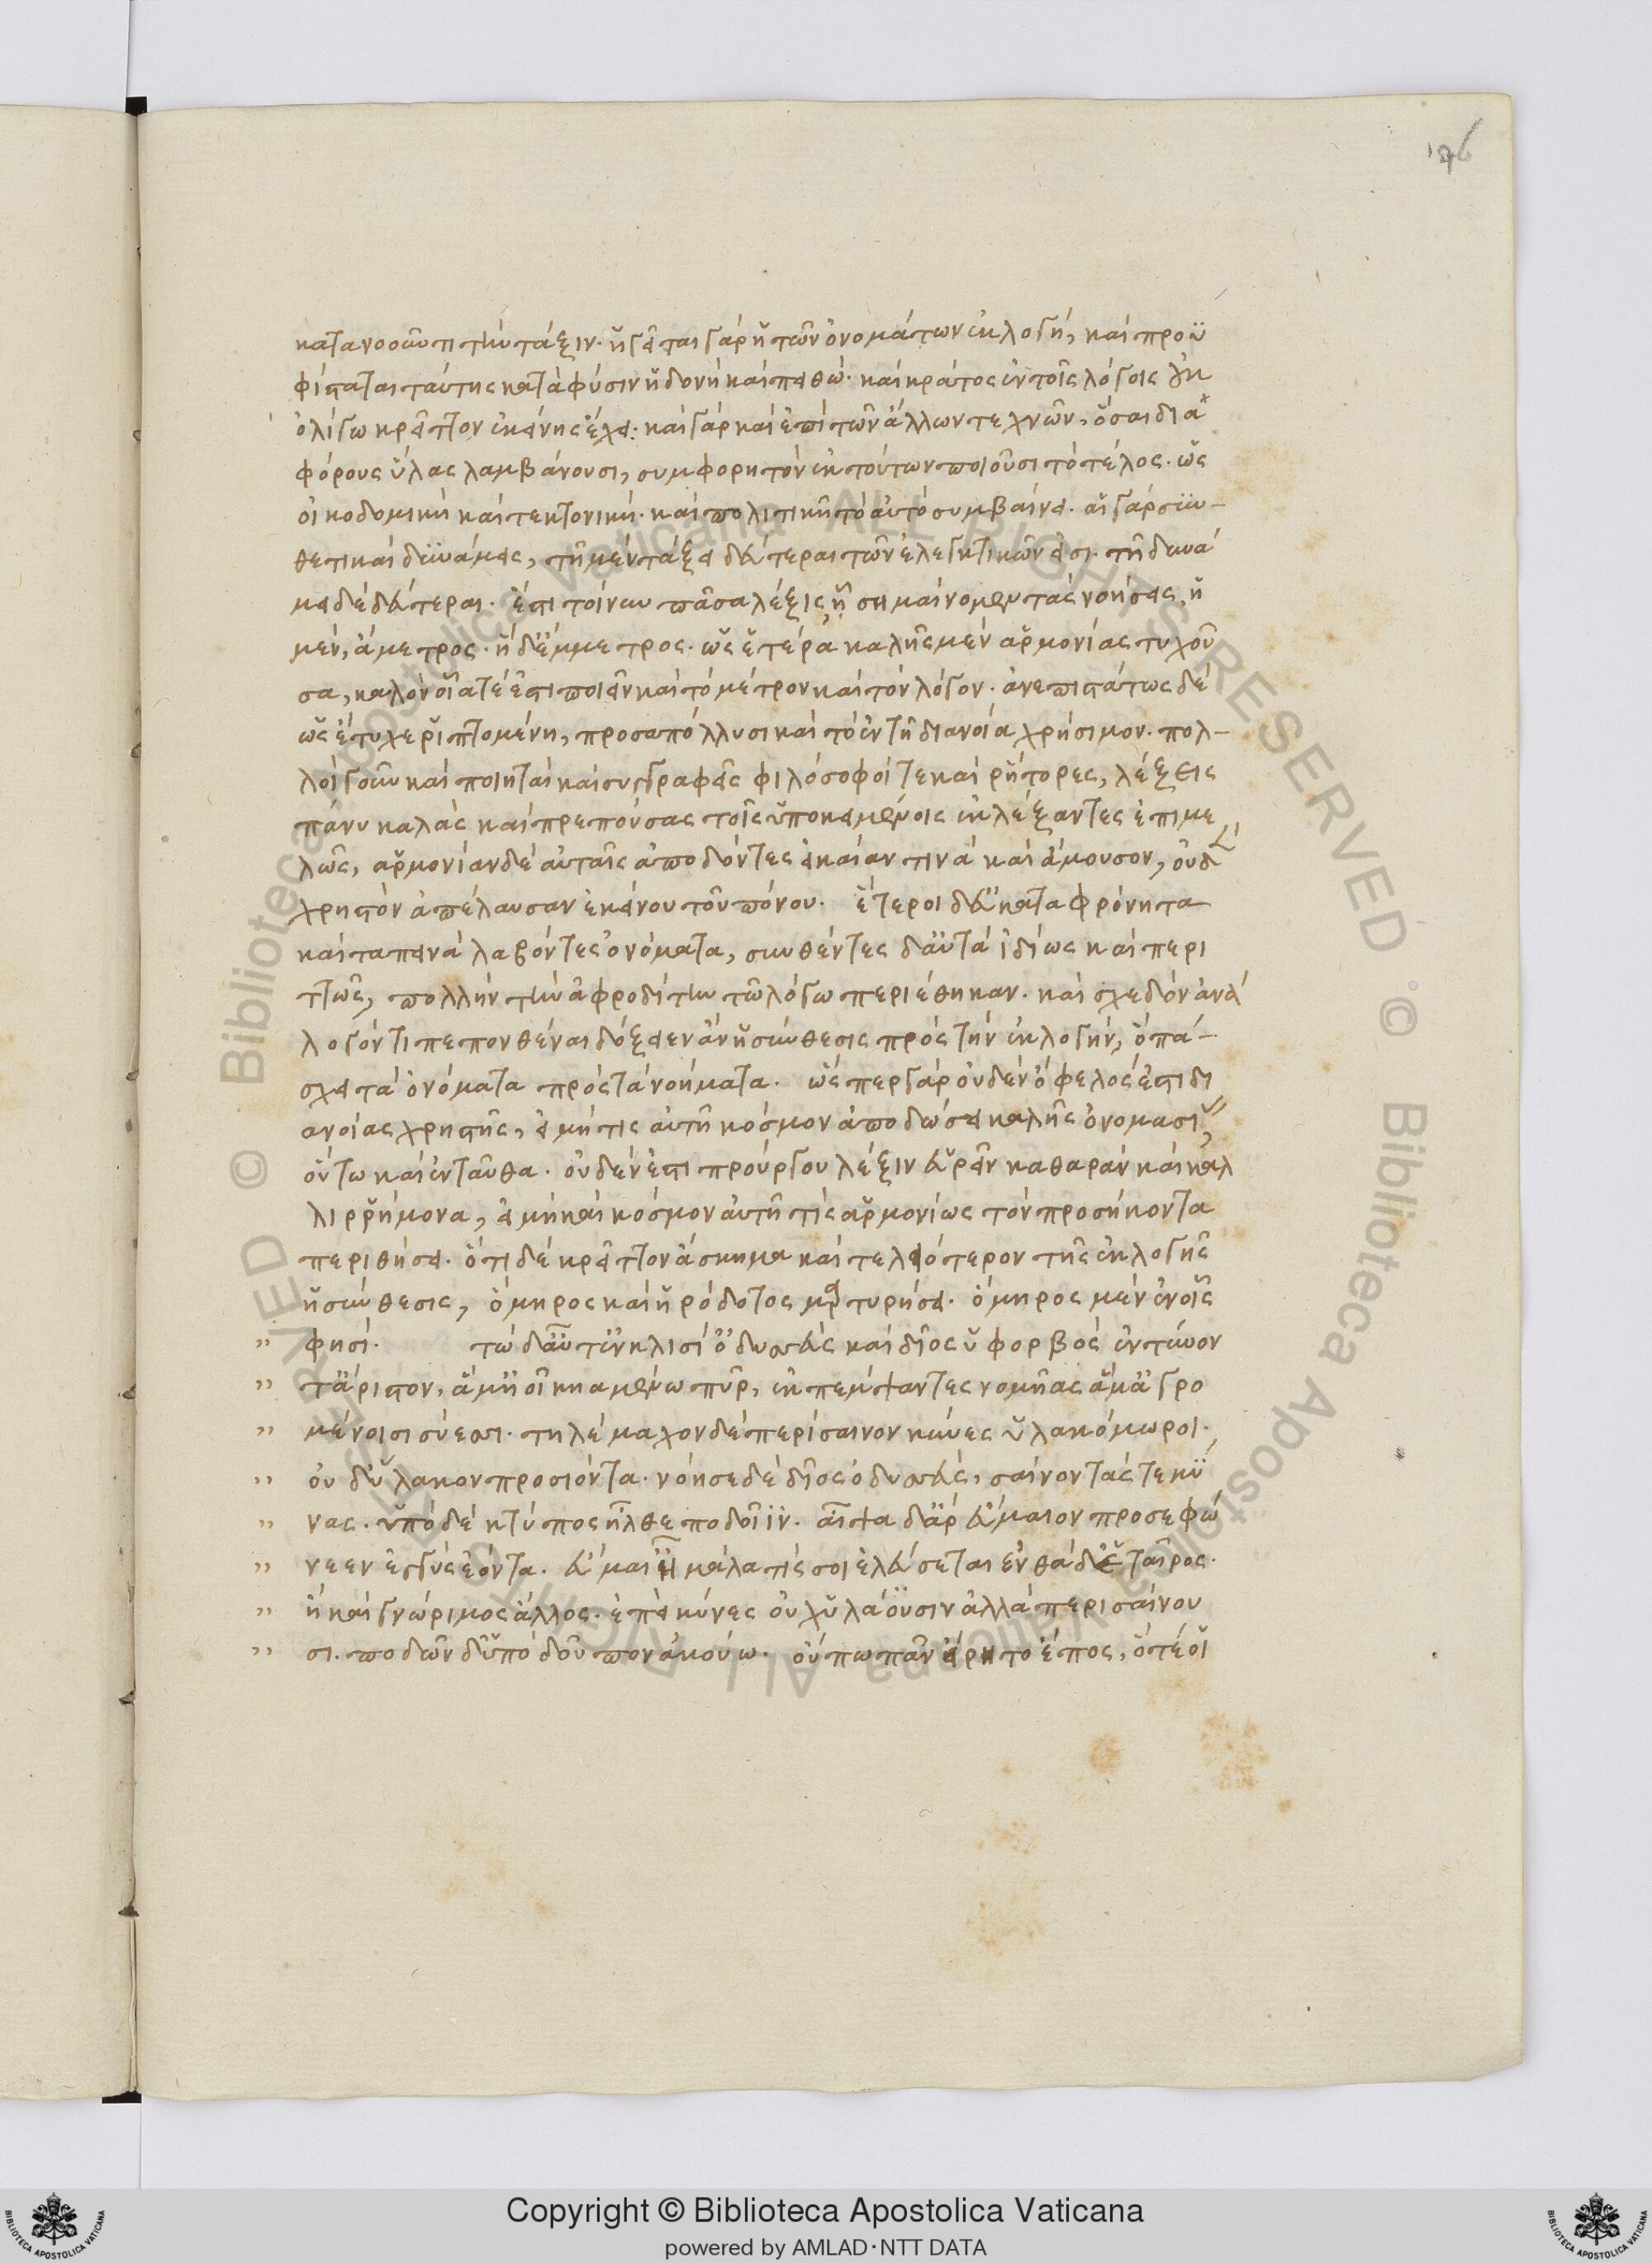 196
κατανοοῦντι τὴν τάξιν· ἡγεῖται γὰρ ἡ τῶν ὀνομάτων ἐκλογή, καὶ προϋ
φίσταται ταύτης κατὰ φύσιν ἡδονὴ καὶ πειθώ· καὶ κράτος ἐν τοῖς λόγοις οὐκ
ὀλίγω κρεῖττον ἐκείνης ἔχει· καὶ γὰρ καὶ ἐπὶ τῶν ἄλλων τεχνῶν, ὅσαι δια
φόρους ὕλας λαμβάνουσι, συμφορητὸν ἐκ τούτων ποιοῦσι τὸ τέλος· ὡς
οἰκοδομικὴ καὶ τεκτονική· καὶ πολιτικῆ τὸ αὐτὸ συμβαίνει· αἱ γὰρ συν-
θετικαὶ δυνάμεις, τῆ μὲν τάξει δεύτεραι τῶν ἐλεγκτικῶν εἰσι· τῆ δυνά
μει δὲ δεύτεραι· ἔστι τοίνυν πᾶσα λέξις, ἧ σημαίνομεν τὰς νοήσεις, ἡ
μὲν, ἄμετρος· ἡ δ' ἔμμετρος· ὡς ἑτέρα καλῆς μὲν ἁρμονίας τυχοῦ
σα, καλὸν οἵα τέ ἐστι ποιεῖν καὶ τὸ μέτρον καὶ τὸν λόγον· ἀνεπιστάτως δὲ
ὡς ἔτυχε ῥιπτομένη, προσαπόλλυσι καὶ τὸ ἐν τῆ διανοία χρήσιμον· πολ-
λοὶ γοῦν καὶ ποιηταὶ καὶ συγγραφεῖς φιλόσοφοί τε καὶ ῥήτορες, λέξεις
πάνυ καλὰς καὶ πρεπούσας τοῖς ὑποκειμένοις ἐκλέξαντες ἐπιμε
λῶς, ἁρμονίαν δὲ αὐταῖς ἀποδόντες εἰκαίαν τινὰ καὶ ἄμουσον, οὐδὲν
χρηστὸν ἀπέλαυσαν ἐκείνου τοῦ πόνου· ἕτεροι δ' εὐκαταφρόνητα
καὶ ταπεινὰ λαβόντες ὀνόματα, συνθέντες δ' αὐτὰ ἰδίως καὶ περι
ττῶς, πολλὴν τὴν ἀφροδίτην τῶ λόγω περιέθηκαν· καὶ σχεδὸν ἀνά
λογόν τι πεπονθέναι δόξειεν ἂν ἡ σύνθεσις πρὸς τὴν ἐκλογήν, ὃ πά-
σχει τὰ ὀνόματα πρὸς τὰ νοήματα· ὥσπερ γὰρ οὐδὲν ὄφελός ἐστι δι
ανοίας χρηστῆς, εἰ μή τις αὐτῆ κόσμον ἀποδώσει καλῆς ὀνομασίας,
οὕτω καὶ ἐνταῦθα· οὐδέν ἐστι προύργου λέξιν εὑρεῖν καθαρὰν καὶ καλ
λιρρήμονα, εἰ μὴ καὶ κόσμον αὐτῆ τις ἁρμονίως τὸν προσήκοντα
περιθήσει· ὅτι δὲ κρεῖττον ἄσκημα καὶ τελειότερον τῆς ἐκλογῆς
ἡ σύνθεσις, ὅμηρος καὶ ἡρόδοτος μαρτυρήσει· ὅμηρος μὲν ἐν οἷς
" φησί· τὼ δ' αὖτ' ἐν κλισίη ὀδυσσεὺς καὶ δῖος ὑφορβὸς ἐντύνον
" τ' ἄριστον, ἅμ' ἠοῖ κηαμένω πῦρ, ἐκπέμψαντες νομῆας ἅμ' ἀγρο
" μένοισι σύεσσι· τηλέμαχον δὲ περίσαινον κύνες ὑλακόμωροι·
" οὐδ' ὕλακον προσιόντα· νόησε δὲ δῖος ὀδυσσεὺς, σαίνοντάς τε κύ
" νας· ὑπὸ δὲ κτύπος ἦλθε ποδοῖιν· αἶψα δ' ἄρ εὔμαιον προσεφώ
" νεεν ἐγγὺς ἐόντα· εὔμαι' ἦ μάλα τίς σοι ἐλεύσεται ἐνθάδ' ἑταῖρος·
" ἢ καὶ γνώριμος ἄλλος· ἐπεὶ κύνες οὐχ ὑλάουσιν ἀλλὰ περισαίνου
" σι· ποδῶν δ' ὑπὸ δοῦπον ἀκούω· οὔπω πᾶν εἴρητο ἔπος, ὅτέ οἱ
Copyright © Biblioteca Apostolica Vaticana
powered by AMLAD·NTT DATA